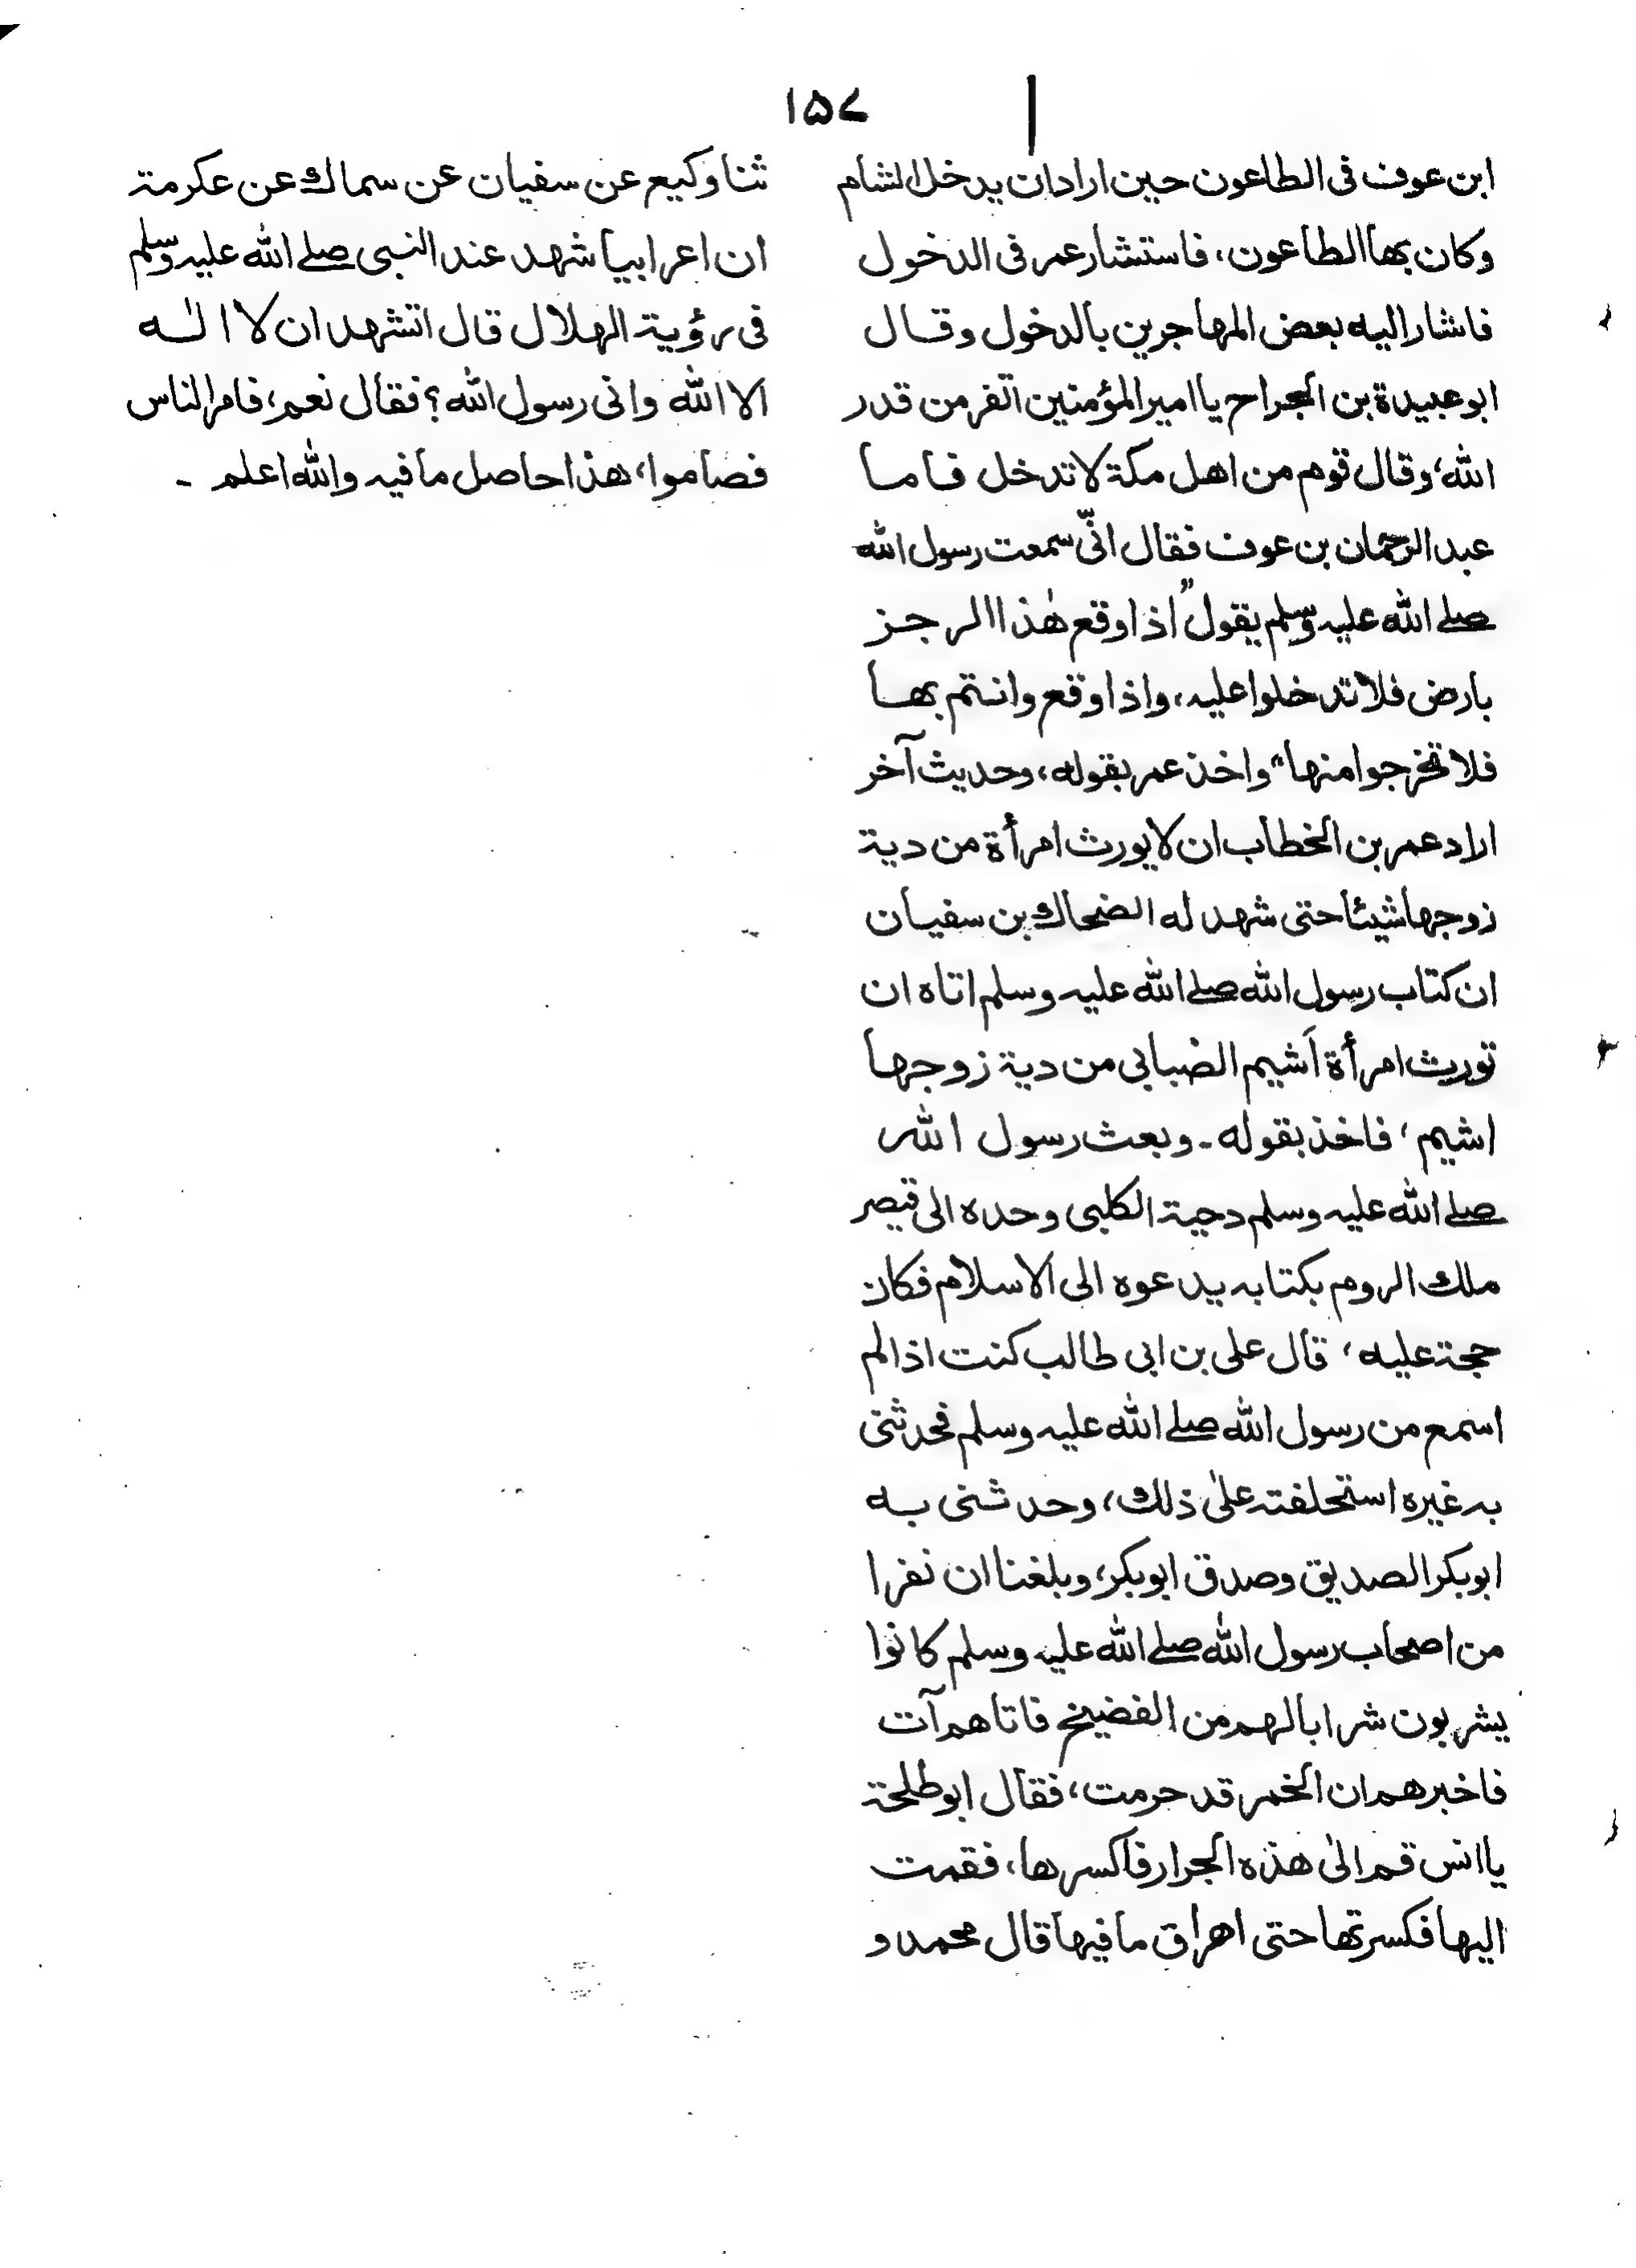 ١٥٧
ابن عوف فى الطاعون حين اراد ان يدخل الشام
وكان بها الطاعون، فاستشار عمر فى الدخول
فاشار اليه بعض المهاجرين بالدخول وقال
ابو عبيدة بن الجراح يا امير المؤمنين اتفر من قدر
الله، وقال قوم من اهل مكة لا تدخل فاما
عبد الرحمان بن عوف فقال انّى سمعت رسول الله
صلے الله عليه وسلم يقول "اذا وقع هٰذا الرجز
بارض فلا تدخلوا عليه، واذا وقع وانتم بها
فلا تخرجوا منها" واخذ عمر بقوله، وحديث آخر
اراد عمر بن الخطاب ان لا يورث امرأة من دية
زوجها شيئا حتى شهد له الضحاك بن سفيان
ان كتاب رسول الله صلے الله عليه وسلم اتاه ان
تورث امرأة اَشيم الضبابى من دية زوجها
اشيم، فاخذ بقوله ۔ وبعث رسول الله
صلے الله عليه وسلم دحية الكلبى وحده الى قيصر
ملك الروم بكتابه يدعوه الى الاسلام فكان
حجة عليه، قال على بن ابى طالب كنت اذا لم
اسمع من رسول الله صلے الله عليه وسلم فحدثنى
به غيره استحلفته علىٰ ذلك، وحدثنى به
ابو بكر الصديق وصدق ابو بكر، وبلغنا ان نفرا
من اصحاب رسول الله صلے الله عليه وسلم كانوا
يشربون شرابا لهم من الفضيخ فاتاهم آت
فاخبرهم ان الخمر قد حرمت، فقال ابو طلحة
يا انس قم الىٰ هذه الجرار فاكسرها، فقمت
اليها فكسرتها حتى اهراق ما فيها قال محمد و
ثنا وكيع عن سفيان عن سماك عن عكرمة
ان اعرابيا شهد عند النبى صلے الله عليه وسلم
فى رؤية الهلال قال اتشهد ان لا الٰه
الا الله وانى رسول الله؟ فقال نعم، فامر الناس
فصاموا، هذا حاصل ما فيه والله اعلم ۔